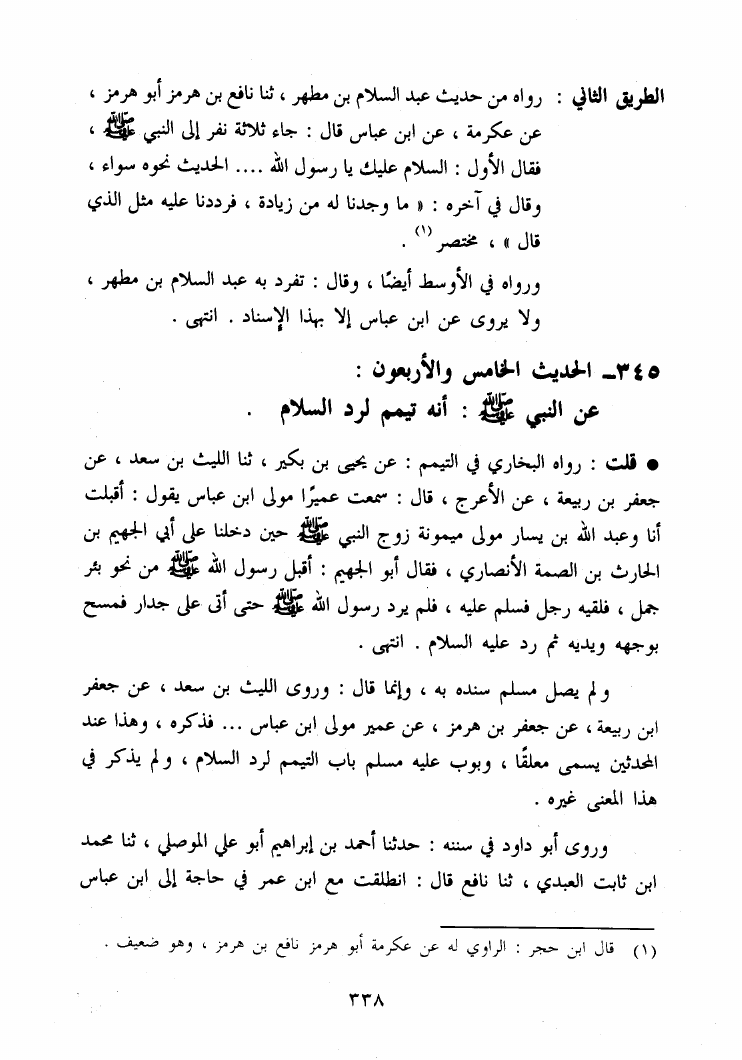 الطريق الثاني : رواه من حديث عبد السلام بن مطهر ، ثنا نافع بن هرمز أبو هرمز ،
عن عكرمة ، عن ابن عباس قال : جاء ثلاثة نفر إلى النبي ﷺ ،
فقال الأول : السلام عليك يا رسول الله .... الحديث نحوه سواء ،
وقال في آخره : « ما وجدنا له من زيادة ، فرددنا عليه مثل الذي
قال » ، مختصر (١) .
ورواه في الأوسط أيضًا ، وقال : تفرد به عبد السلام بن مطهر ،
ولا يروى عن ابن عباس إلا بهذا الإسناد . انتهى .
٣٤٥ـ الحديث الخامس والأربعون :
عن النبي ﷺ : أنه تيمم لرد السلام .
● قلت : رواه البخاري في التيمم : عن يحيى بن بكير ، ثنا الليث بن سعد ، عن
جعفر بن ربيعة ، عن الأعرج ، قال : سمعت عميرًا مولى ابن عباس يقول : أقبلت
أنا وعبد الله بن يسار مولى ميمونة زوج النبي ﷺ حين دخلنا على أبي الجهيم بن
الحارث بن الصمة الأنصاري ، فقال أبو الجهيم : أقبل رسول الله ﷺ من نحو بئر
جمل ، فلقيه رجل فسلم عليه ، فلم يرد رسول الله ﷺ حتى أتى على جدار فمسح
بوجهه ويديه ثم رد عليه السلام . انتهى .
ولم يصل مسلم سنده به ، وإنما قال : وروى الليث بن سعد ، عن جعفر
ابن ربيعة ، عن جعفر بن هرمز ، عن عمير مولى ابن عباس ... فذكره ، وهذا عند
المحدثين يسمى معلقًا ، وبوب عليه مسلم باب التيمم لرد السلام ، ولم يذكر في
هذا المعنى غيره .
وروى أبو داود في سننه : حدثنا أحمد بن إبراهيم أبو علي الموصلي ، ثنا محمد
ابن ثابت العبدي ، ثنا نافع قال : انطلقت مع ابن عمر في حاجة إلى ابن عباس
(١) قال ابن حجر : الراوي له عن عكرمة أبو هرمز نافع بن هرمز ، وهو ضعيف .
٣٣٨